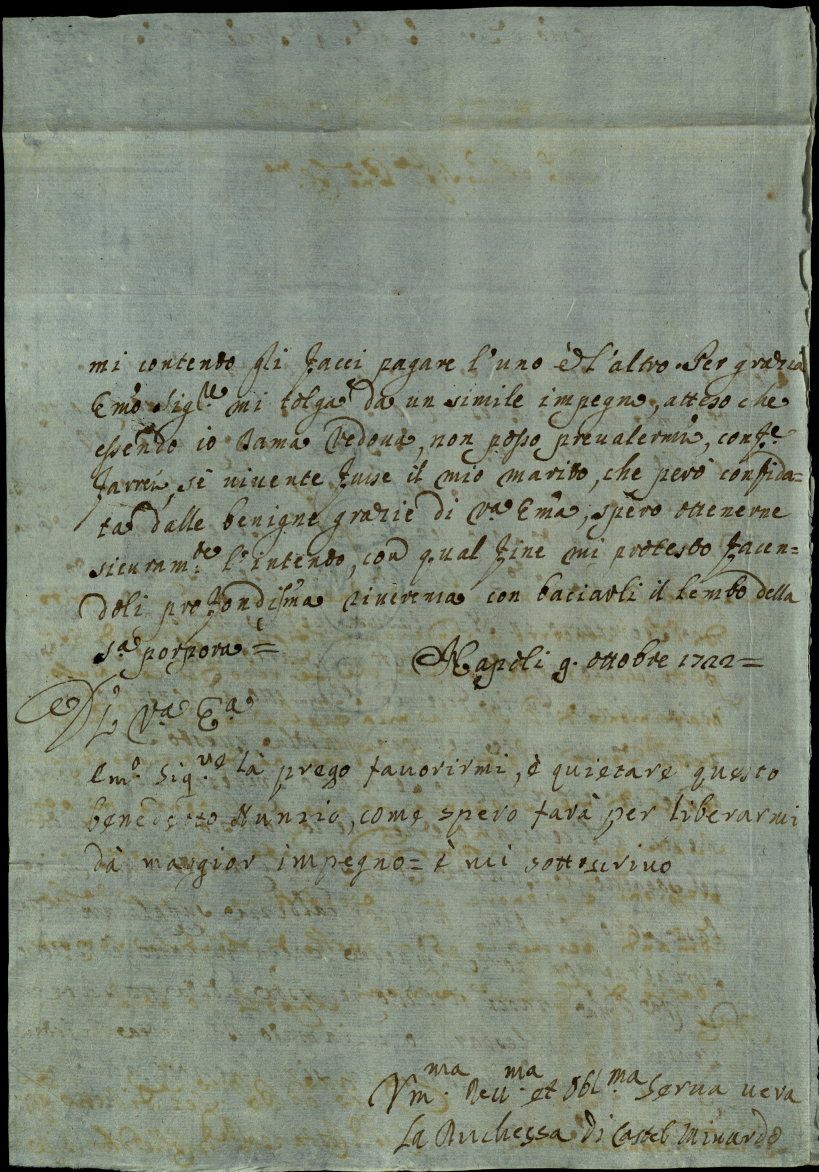 mi contendo gli facci pagare l'uno è l'altro. Per grazia
Emo Sigre mi tolga da un simile impegno, atteso che
essendo io Dama Vedova, non posso prevalermi, conf.e
farrei, sé vivente fusse il mio marito, che però confida=
ta dalle benigne grazie di Va Emã, spero ottenerne
sicuram.te l'intendo, con qual fine mi protesto facen=
doli profondissma riverenza con baciarli il lembo della
sa porpora =
Napoli 9. ottobre 1722=
Di Va Ea
Emo. Sigre la prego favorirmi, è quietare questo
benedetto Nunzio, come spero farà per liberarmi
dà maggior impegno= è mi sottoscrivo
Um.ma Deu.ma et Obl.ma Serva vera
La Duchessa di Castel Minardo